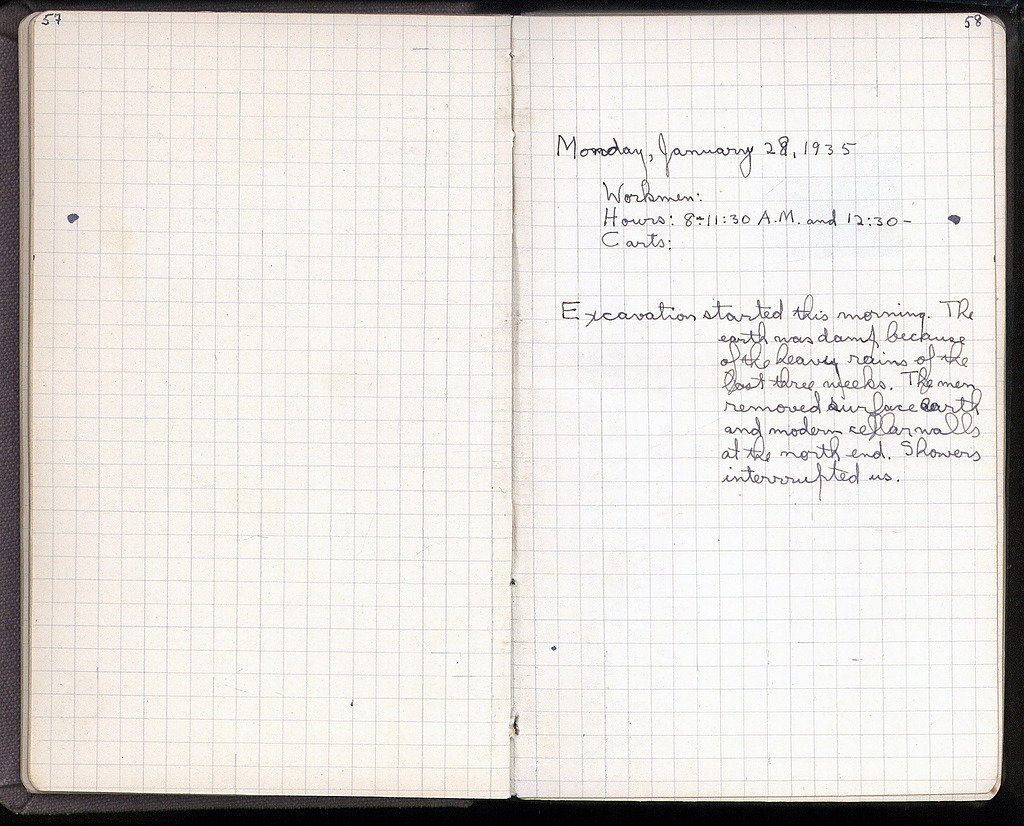 57
58
Monday, January 28, 1935
Workmen:
Hours: 8-11:30 A.M. and 12:30-
Carts:
Excavation started this morning. The
earth was damp because
of the heavy rains of the
last three weeks. The men
removed surface earth
and modern cellar walls
at the north end. Showers
interrupted us.